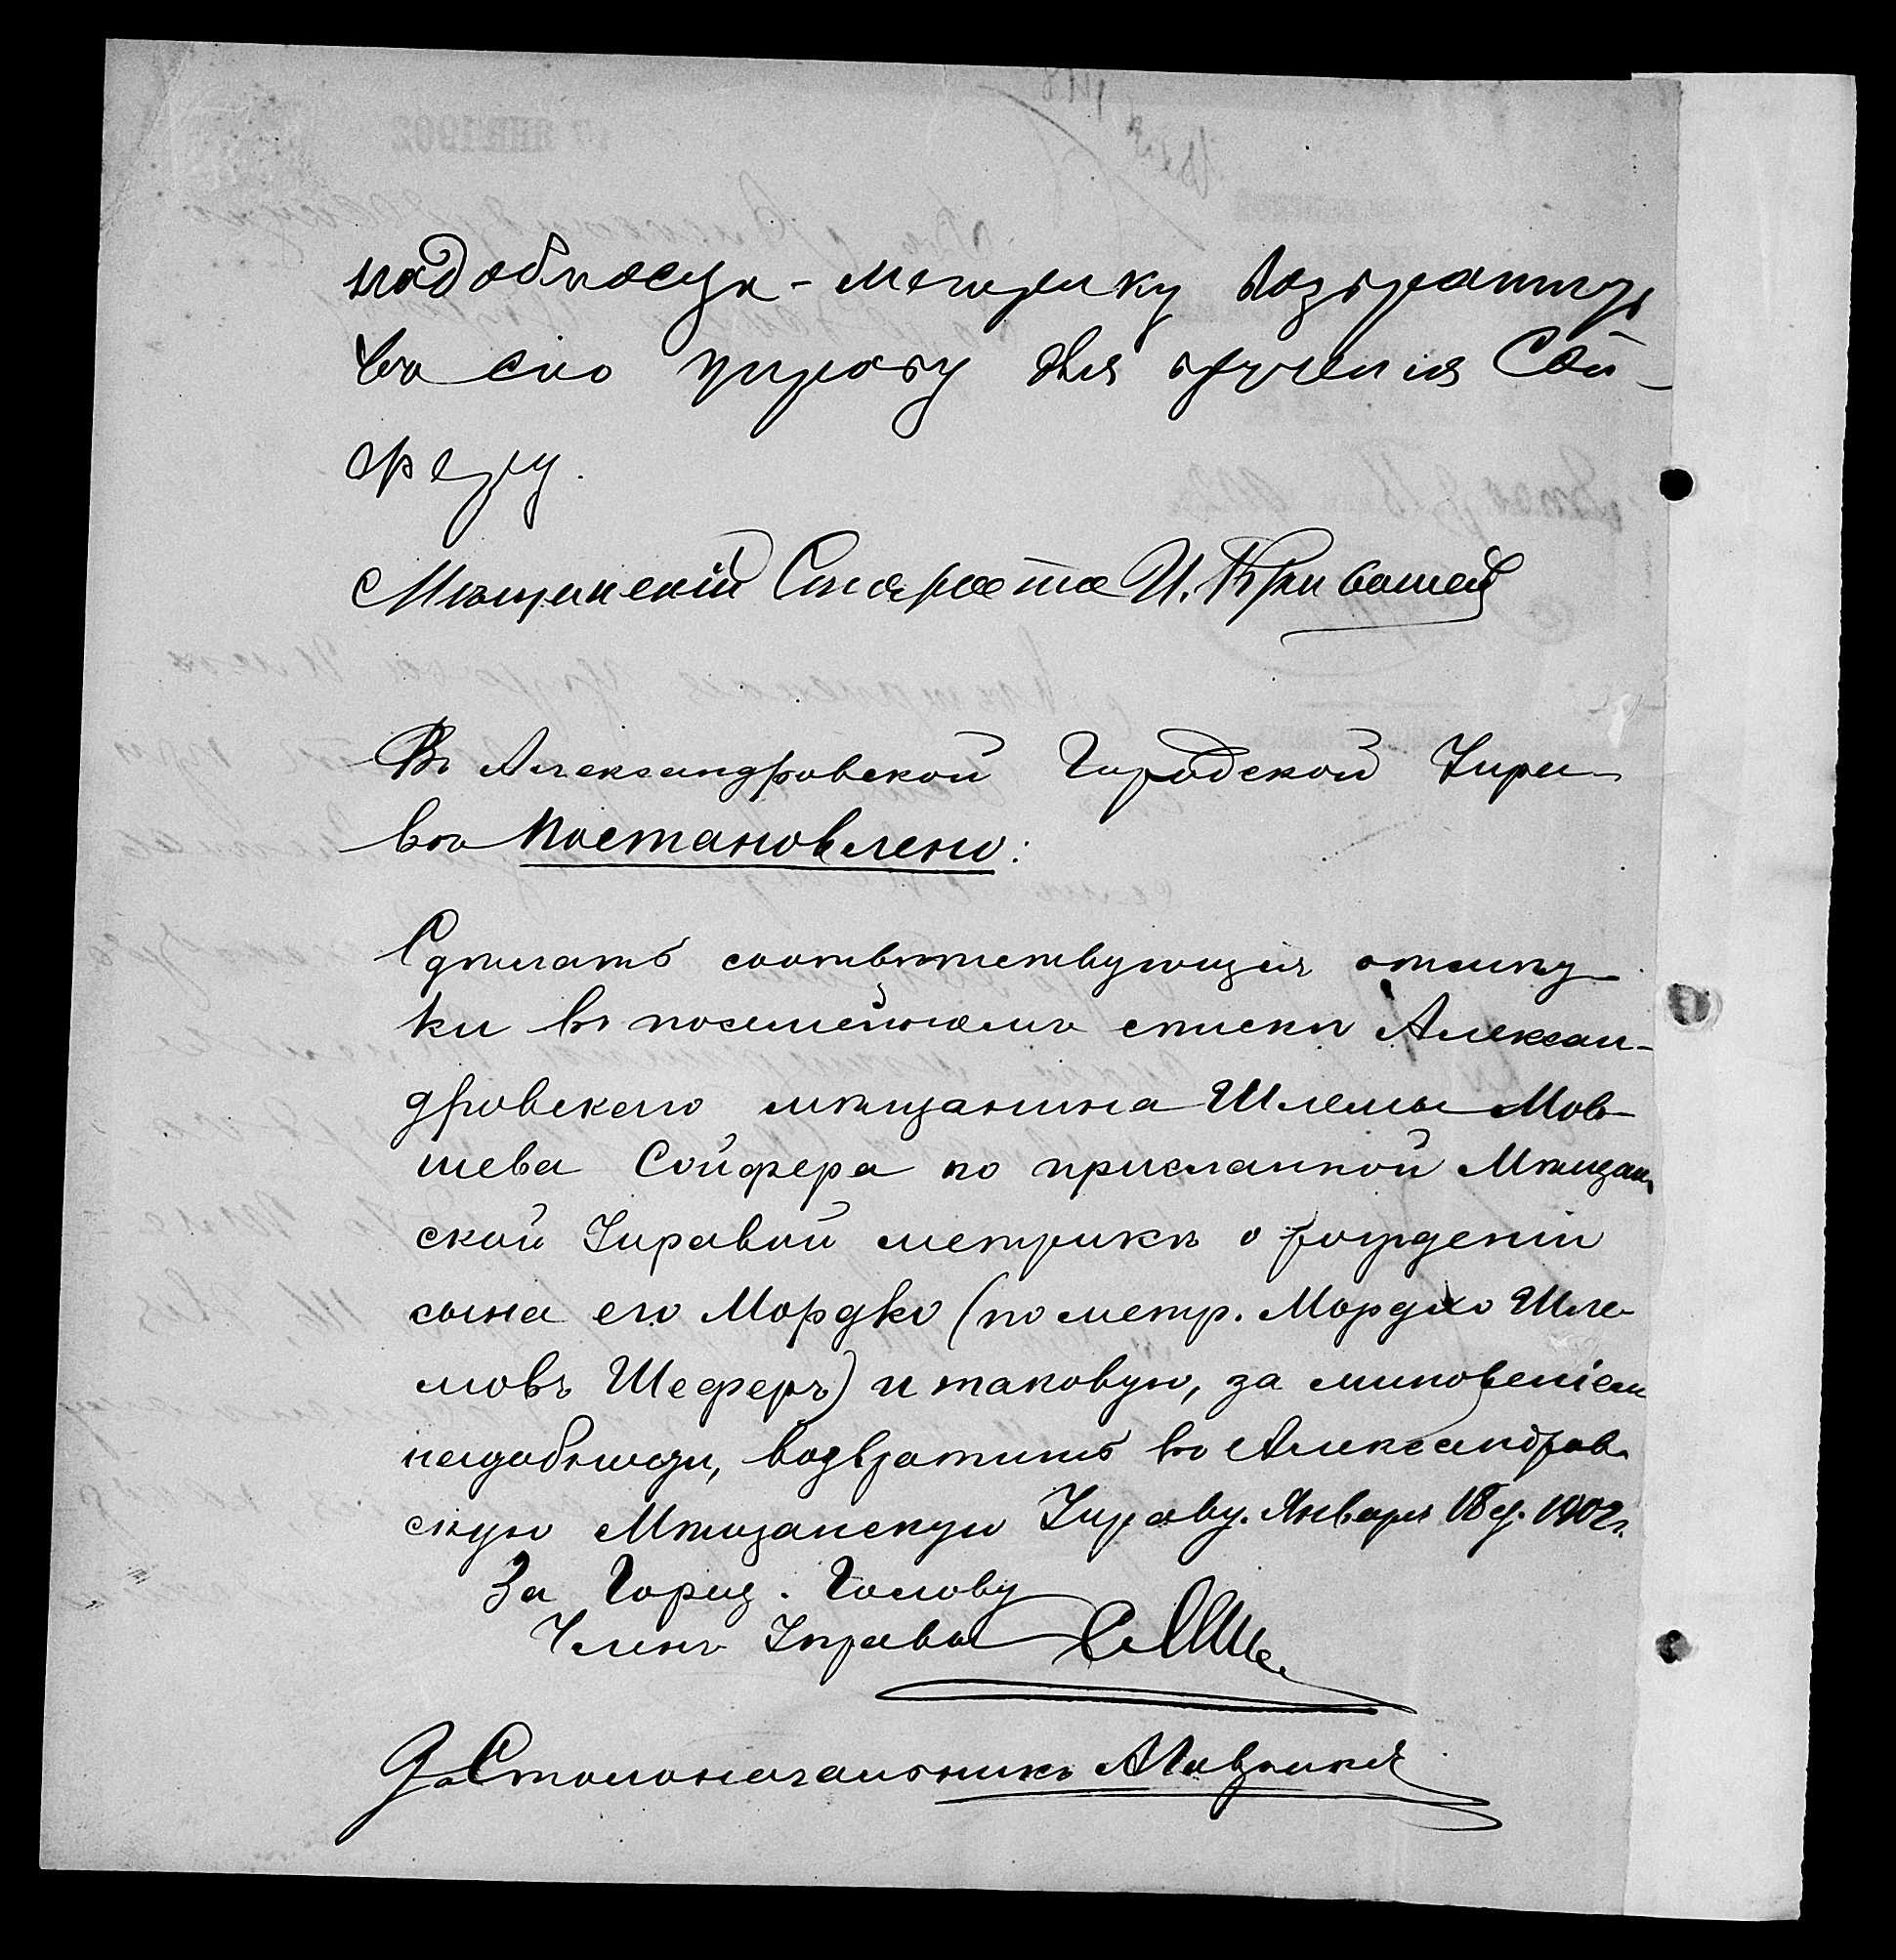 надобности - метрику возвратить
въ сію управу для врученія Сой-
феру.
Мѣщанскій Староста И.
Въ Александровской Городской Упра-
вѣ постановлено:
Сдѣлать соотвѣтствующія отмѣт-
ки въ посемейномъ спискѣ Алексан-
дровскаго мѣщанина Шлемы Мов-
шева Сойфера по присланной Мѣщан-
ской Управой метрикѣ о рожденіи
сына его Мордко (по метр. Мордхо Шле-
мовъ Шеферъ) и таковую, за минованіем
надобности, возвратить въ Александров-
скую Мѣщанскую Управу. Января 18 д. 1902 г.
За Город. Голову
Членъ Управы
Столоначальникъ